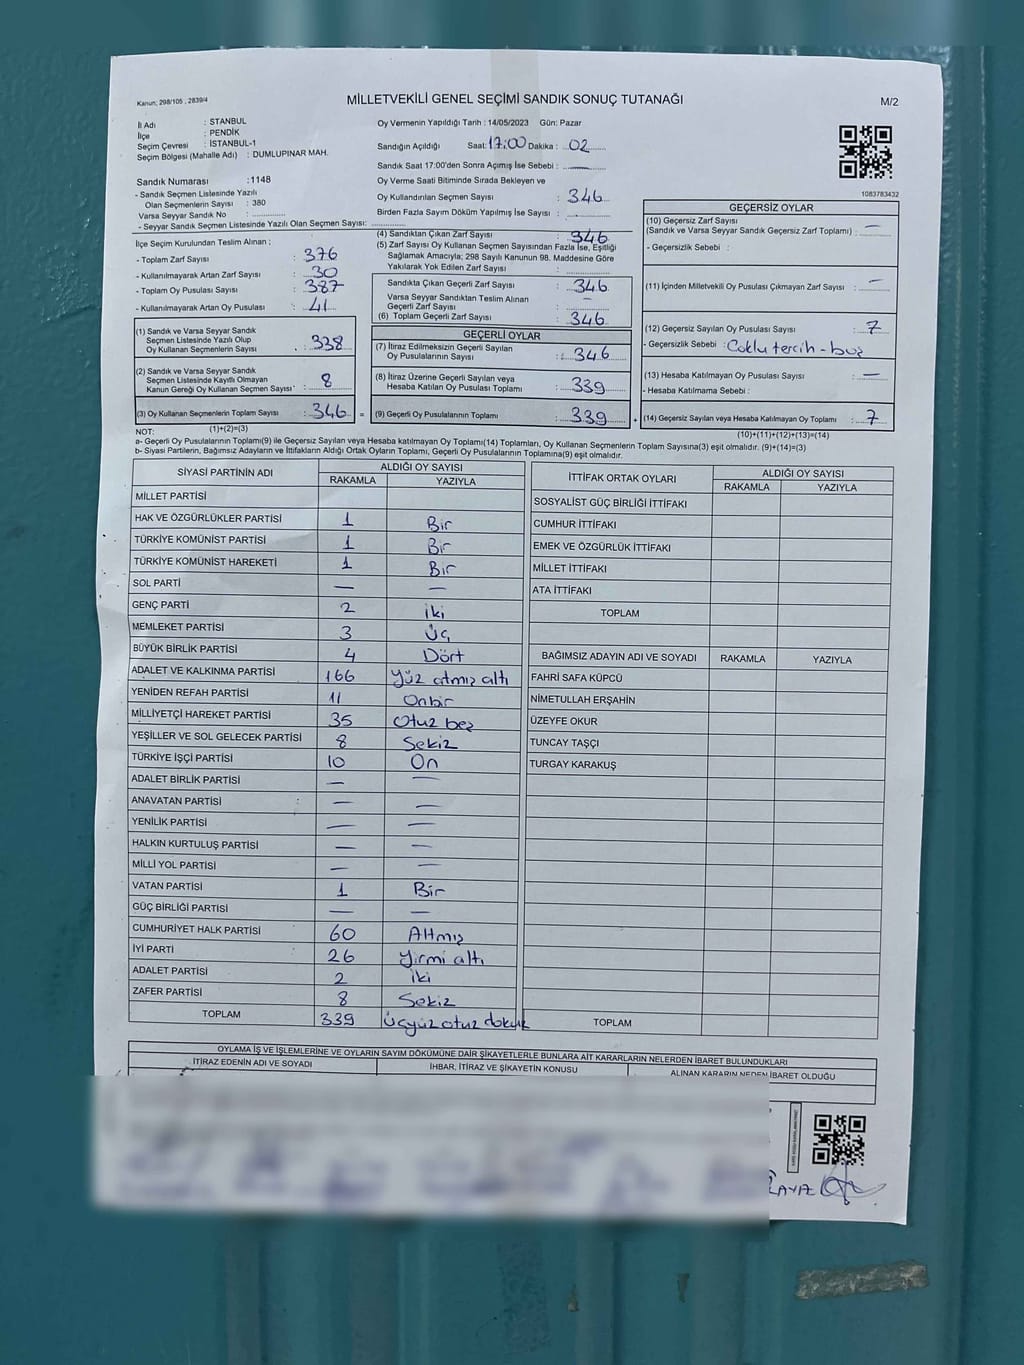 Kanun; 298/105 , 2839/4
MİLLETVEKİLİ GENEL SEÇİMİ SANDIK SONUÇ TUTANAĞI
M/2
İl Adı : İSTANBUL
İlçe : PENDİK
Seçim Çevresi : İSTANBUL-1
Seçim Bölgesi (Mahalle Adı) : DUMLUPINAR MAH.
Sandık Numarası :1148
- Sandık Seçmen Listesinde Yazılı
Olan Seçmenlerin Sayısı : 380
Varsa Seyyar Sandık No :
- Seyyar Sandık Listesinde Yazılı Olan Seçmen Sayısı:
Oy Vermenin Yapıldığı Tarih : 14/05/2023 Gün: Pazar
Sandığın Açıldığı Saat: 17:00 Dakika : 02
Sandık Saat 17:00'den Sonra Açımış İse Sebebi : —
Oy Verme Saati Bitiminde Sırada Bekleyen ve
Oy Kullandırılan Seçmen Sayısı : 346
Birden Fazla Sayım Döküm Yapılmış İse Sayısı :
1083783432
İlçe Seçim Kurulundan Teslim Alınan ;
- Toplam Zarf Sayısı : 376
- Kullanılmayarak Artan Zarf Sayısı : 30
- Toplam Oy Pusulası Sayısı : 387
- Kullanılmayarak Artan Oy Pusulası : 41
(1) Sandık ve Varsa Seyyar Sandık
Seçmen Listesinde Yazılı Olup
Oy Kullanan Seçmenlerin Sayısı : 338
(2) Sandık ve Varsa Seyyar Sandık
Seçmen Listesinde Kayıtlı Olmayan
Kanun Gereği Oy Kullanan Seçmen Sayısı : 8
(3) Oy Kullanan Seçmenlerin Toplam Sayısı : 346 =
(1)+(2)=(3)
(4) Sandıktan Çıkan Zarf Sayısı : 346
(5) Zarf Sayısı Oy Kullanan Seçmen Sayısından Fazla İse, Eşitliği
Sağlamak Amacıyla; 298 Sayılı Kanunun 98. Maddesine Göre
Yakılarak Yok Edilen Zarf Sayısı :
Sandıkta Çıkan Geçerli Zarf Sayısı : 346
Varsa Seyyar Sandıktan Teslim Alınan
Geçerli Zarf Sayısı : —
(6) Toplam Geçerli Zarf Sayısı : 346
GEÇERLİ OYLAR
(7) İtiraz Edilmeksizin Geçerli Sayılan
Oy Pusulalarının Sayısı : 346
(8) İtiraz Üzerine Geçerli Sayılan veya
Hesaba Katılan Oy Pusulası Toplamı : 339
(9) Geçerli Oy Pusulalarının Toplamı : 339 +
GEÇERSİZ OYLAR
(10) Geçersiz Zarf Sayısı
(Sandık ve Varsa Seyyar Sandık Geçersiz Zarf Toplamı) : —
- Geçersizlik Sebebi :
(11) İçinden Milletvekili Oy Pusulası Çıkmayan Zarf Sayısı : —
(12) Geçersiz Sayılan Oy Pusulası Sayısı : 7
- Geçersizlik Sebebi : Çoklu tercih - boş
(13) Hesaba Katılmayan Oy Pusulası Sayısı : —
- Hesaba Katılmama Sebebi :
(14) Geçersiz Sayılan veya Hesaba Katılmayan Oy Toplamı : 7
(10)+(11)+(12)+(13)=(14)
NOT:
a- Geçerli Oy Pusulalarının Toplamı(9) ile Geçersiz Sayılan veya Hesaba katılmayan Oy Toplamı(14) Toplamları, Oy Kullanan Seçmenlerin Toplam Sayısına(3) eşit olmalıdır. (9)+(14)=(3)
b- Siyasi Partilerin, Bağımsız Adayların ve İttifakların Aldığı Ortak Oyların Toplamı, Geçerli Oy Pusulalarının Toplamına(9) eşit olmalıdır.
SİYASİ PARTİNİN ADI ALDIĞI OY SAYISI
RAKAMLA YAZIYLA
MİLLET PARTİSİ
HAK VE ÖZGÜRLÜKLER PARTİSİ 1 Bir
TÜRKİYE KOMÜNİST PARTİSİ 1 Bir
TÜRKİYE KOMÜNİST HAREKETİ 1 Bir
SOL PARTİ — —
GENÇ PARTİ 2 iki
MEMLEKET PARTİSİ 3 Üç
BÜYÜK BİRLİK PARTİSİ 4 Dört
ADALET VE KALKINMA PARTİSİ 166 Yüz atmış altı
YENİDEN REFAH PARTİSİ 11 Onbir
MİLLİYETÇİ HAREKET PARTİSİ 35 Otuz beş
YEŞİLLER VE SOL GELECEK PARTİSİ 8 Sekiz
TÜRKİYE İŞÇİ PARTİSİ 10 On
ADALET BİRLİK PARTİSİ — —
ANAVATAN PARTİSİ — —
YENİLİK PARTİSİ — —
HALKIN KURTULUŞ PARTİSİ — —
MİLLİ YOL PARTİSİ — —
VATAN PARTİSİ 1 Bir
GÜÇ BİRLİĞİ PARTİSİ — —
CUMHURİYET HALK PARTİSİ 60 Altmış
İYİ PARTİ 26 Yirmi altı
ADALET PARTİSİ 2 iki
ZAFER PARTİSİ 8 Sekiz
TOPLAM 339 Üçyüz otuz dokuz
İTTİFAK ORTAK OYLARI ALDIĞI OY SAYISI
RAKAMLA YAZIYLA
SOSYALİST GÜÇ BİRLİĞİ İTTİFAKI
CUMHUR İTTİFAKI
EMEK VE ÖZGÜRLÜK İTTİFAKI
MİLLET İTTİFAKI
ATA İTTİFAKI
TOPLAM
BAĞIMSIZ ADAYIN ADI VE SOYADI RAKAMLA YAZIYLA
FAHRİ SAFA KÜPCÜ
NİMETULLAH ERŞAHİN
ÜZEYFE OKUR
TUNCAY TAŞÇI
TURGAY KARAKUŞ
TOPLAM
OYLAMA İŞ VE İŞLEMLERİNE VE OYLARIN SAYIM DÖKÜMÜNE DAİR ŞİKAYETLERLE BUNLARA AİT KARARLARIN NELERDEN İBARET BULUNDUKLARI
İTİRAZ EDENİN ADI VE SOYADI İHBAR, İTİRAZ VE ŞİKAYETİN KONUSU ALINAN KARARIN NEDEN İBARET OLDUĞU